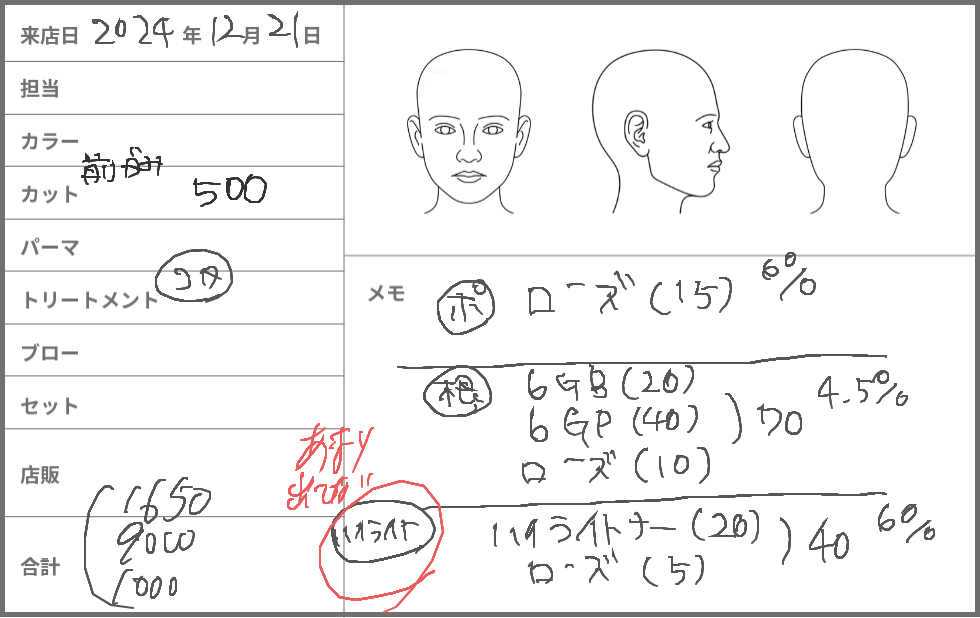 来店日 2024 年 12 月 21 日
担当
カラー
前
カット 500
パーマ
コメ
トリートメント
ブロー
セット
店販
1650
9000
合計
1000
メモ
ポ ローズ (15) 6%
根 6GB (20)
6GP (40) ) 70 4.5%
ローズ (10)
あまり
出てない
ハイライト ハイライトナー (20) ) 40 6%
ローズ (5)